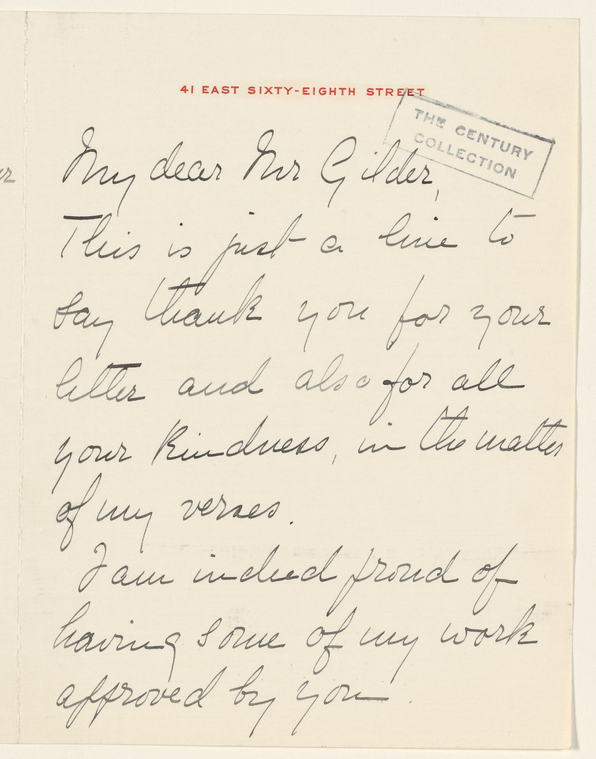 41 EAST SIXTY-EIGHTH STREET
THE CENTURY
COLLECTION
My dear Mr Gilder,
This is just a line to
say thank you for your
letter and also for all
your kindness, in the matter
of my verses.
I am indeed proud of
having some of my work
approved by you.